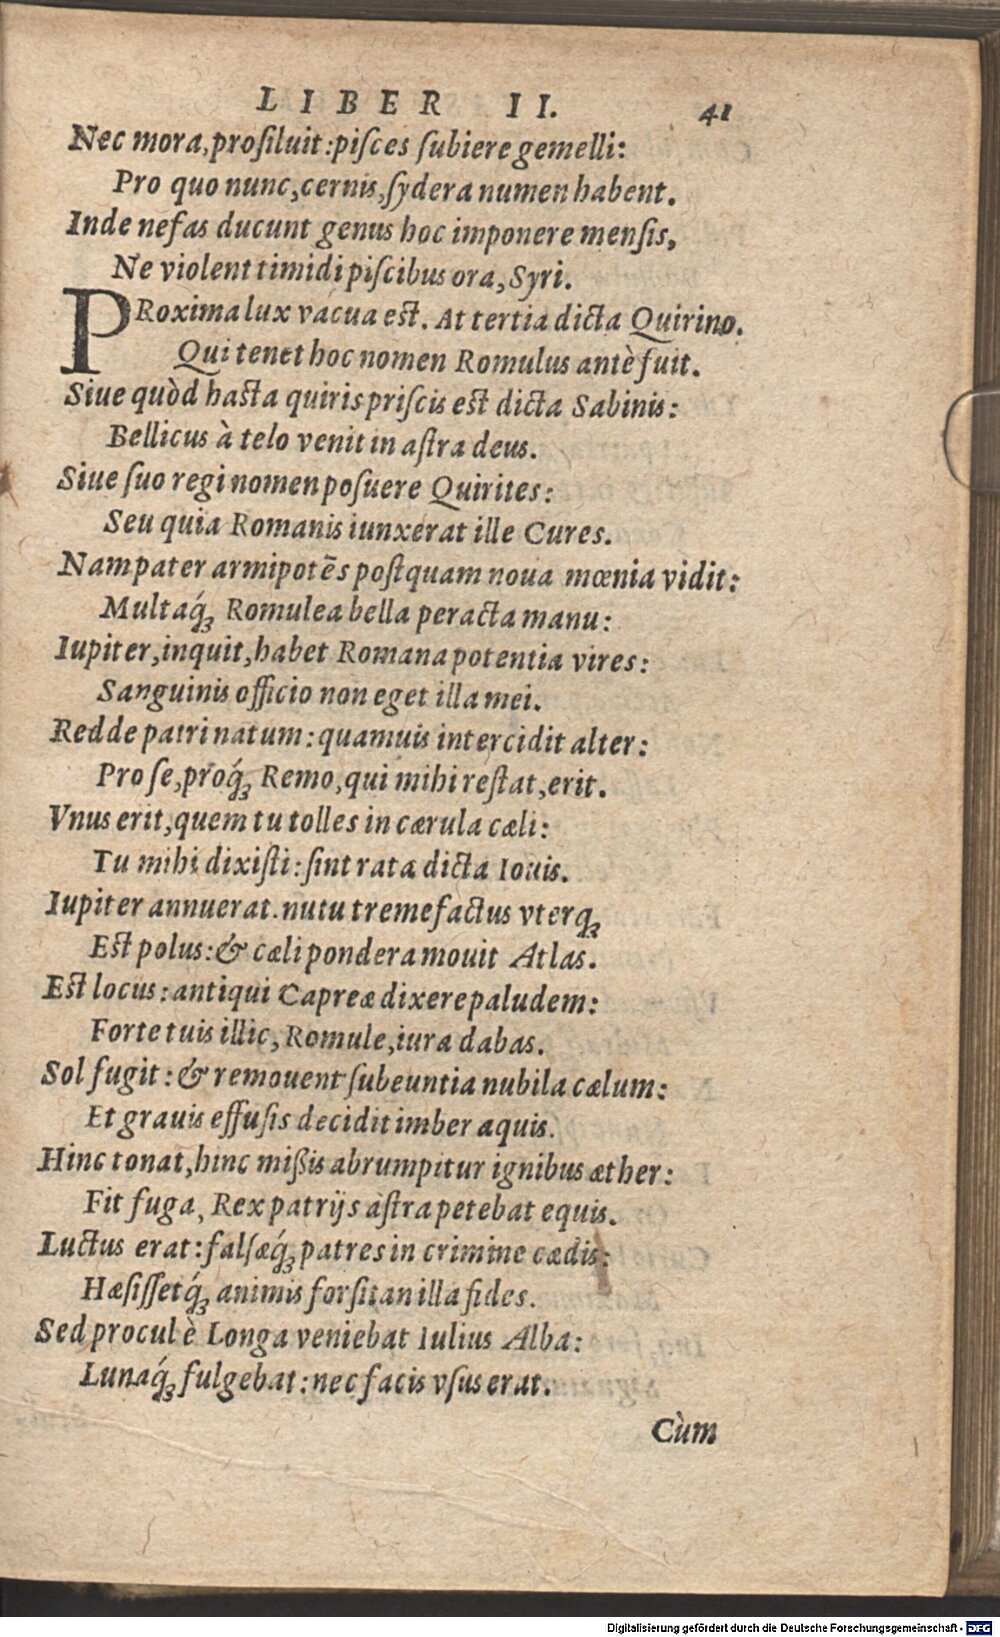 LIBER II. 41
Nec mora, proſiluit: piſces ſubiere gemelli:
Pro quo nunc, cernis, ſydera numen habent.
Inde nefas ducunt genus hoc imponere menſis,
Ne violent timidi piſcibus ora, Syri.
PRoxima lux vacua est. At tertia dicta Quirino.
Qui tenet hoc nomen Romulus antè fuit.
Siue quòd hasta quiris priſcis est dicta Sabinis:
Bellicus à telo venit in aſtra deus.
Siue ſuo regi nomen poſuere Quirites:
Seu quia Romanis iunxerat ille Cures.
Nam pater armipotẽs poſtquam noua mœnia vidit:
Multaq́ꝫ Romulea bella peracta manu:
Iupiter, inquit, habet Romana potentia vires:
Sanguinis officio non eget illa mei.
Redde patri natum: quamuis intercidit alter:
Pro ſe, proq́ꝫ Remo, qui mihi reſtat, erit.
Vnus erit, quem tu tolles in cærula cæli:
Tu mihi dixiſti: ſint rata dicta Iouis.
Iupiter annuerat. nutu tremefactus vterqꝫ
Est polus: & cæli pondera mouit Atlas.
Est locus: antiqui Capreæ dixere paludem:
Forte tuis illic, Romule, iura dabas.
Sol fugit: & remouent ſubeuntia nubila cælum:
Et grauis effuſis decidit imber aquis.
Hinc tonat, hinc miſsis abrumpitur ignibus æther:
Fit fuga, Rex patrijs aſtra petebat equis.
Luctus erat: falſæq́ꝫ patres in crimine cædis:
Hæſiſſetq́ꝫ animis forſitan illa fides.
Sed procul è Longa veniebat Iulius Alba:
Lunaq́ꝫ fulgebat: nec facis vſus erat.
Cùm
Digitalisierung gefördert durch die Deutsche Forschungsgemeinschaft - DFG